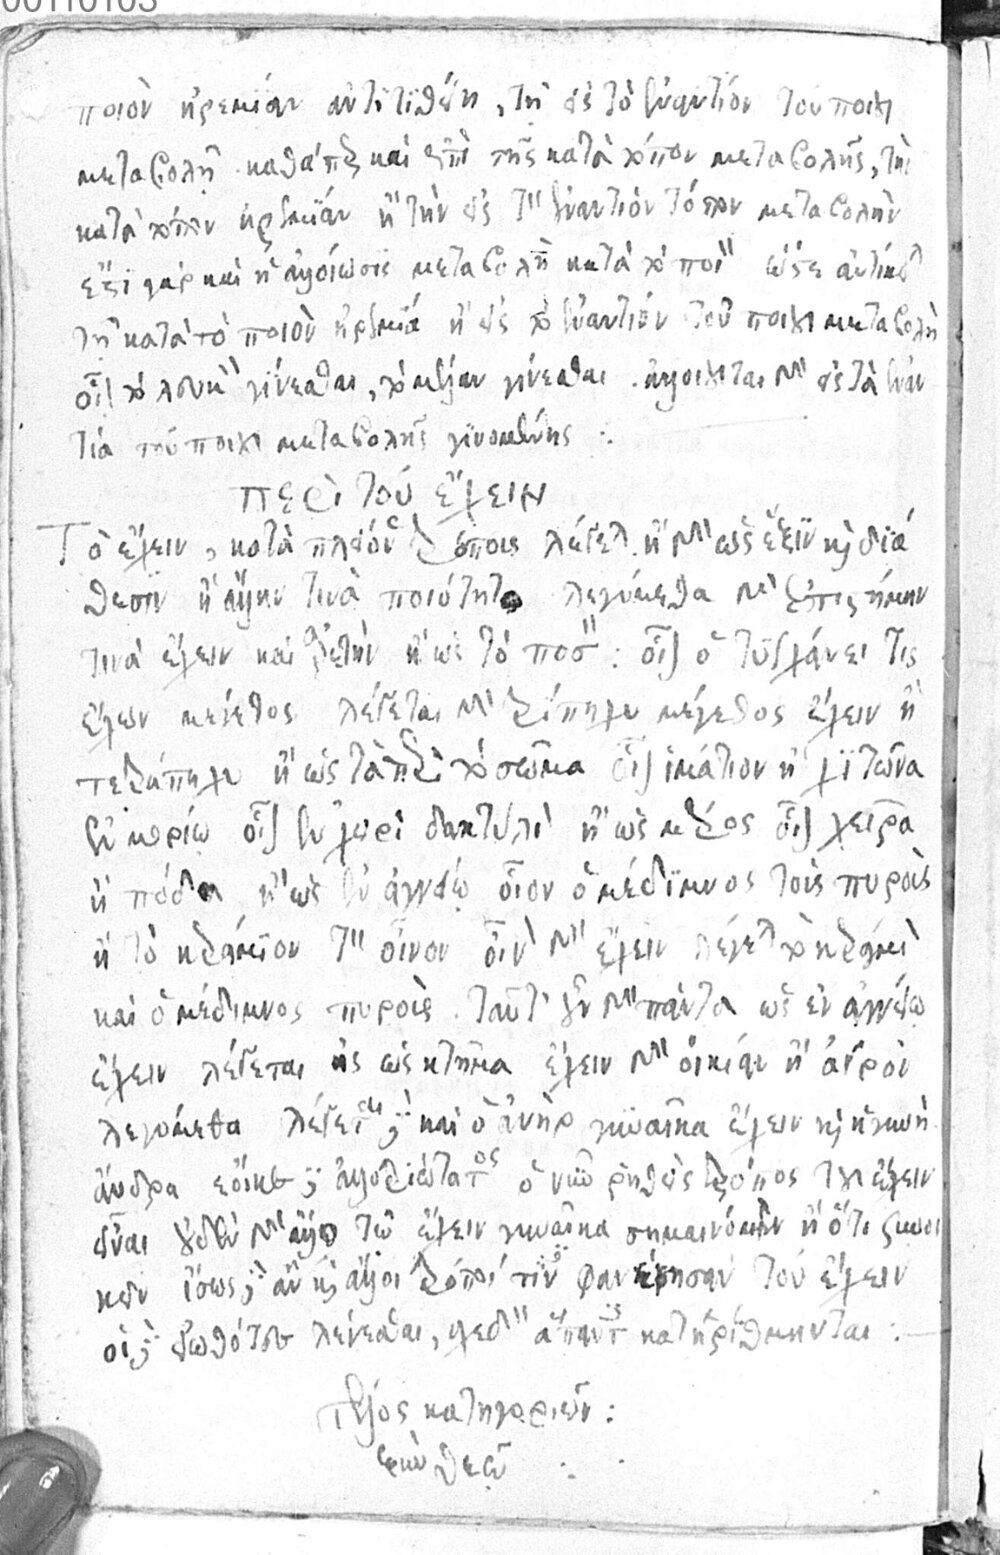 00110103
ποιὸν ἠρεμίαν ἀντιτιθέναι, τὴν εἰς τὸ ἐναντίον τοῦ ποιοῦ
μεταβολὴν. καθάπερ καὶ ἐπὶ τῆς κατὰ τόπον μεταβολῆς, τὴν
κατὰ τόπον ἠρεμίαν ἢ τὴν εἰς τὸν ἐναντίον τόπον μεταβολὴν
ἔστι γὰρ καὶ ἡ ἀλλοίωσις μεταβολὴ κατὰ τὸ ποιὸν ὥστε ἀντίκειται
τῇ κατὰ τὸ ποιὸν ἠρεμία ἢ εἰς τὸ ἐναντίον τοῦ ποιοῦ μεταβολὴ
οἷον τὸ λευκὸν γίνεσθαι, τὸ μέλαν γίνεσθαι. ἀλλοιοῦται γὰρ εἰς τὰ ἐναν
τία τοῦ ποιοῦ μεταβολῆς γινομένης :
περὶ τοῦ ἔχειν
Τὸ ἔχειν, κατὰ πλείονας τρόπους λέγεται ἢ γὰρ ὡς ἕξιν καὶ διά
θεσιν ἢ ἄλλην τινὰ ποιότητα λεγόμεθα γὰρ ἐπιστήμην
τινὰ ἔχειν καὶ ἀρετὴν ἢ ὡς τὸ ποσὸν : οἷον ὃ τυγχάνει τις
ἔχων μέγεθος λέγεται γὰρ τρίπηχυ μέγεθος ἔχειν ἢ
τετράπηχυ ἢ ὡς τὰ περὶ τὸ σῶμα οἷον ἱμάτιον ἢ χιτῶνα
ἐν μορίῳ οἷον ἐν χειρὶ δακτύλιον ἢ ὡς μέρος οἷον χεῖρα
ἢ πόδα ἢ ὡς ἐν ἀγγείῳ οἷον ὁ μέδιμνος τοὺς πυροὺς
ἢ τὸ κεράμιον τὸν οἶνον οἶνον γὰρ ἔχειν λέγεται τὸ κεράμιον
καὶ ὁ μέδιμνος πυροὺς. ταῦτ' οὖν πάντα ὡς ἐν ἀγγείῳ
ἔχειν λέγεται ἢ ὡς κτῆμα ἔχειν γὰρ οἰκίαν ἢ ἀγρὸν
λεγόμεθα λέγεται δὲ καὶ ὁ ἀνὴρ γυναῖκα ἔχειν καὶ ἡ γυνὴ
ἄνδρα ἔοικε δὲ ἀλλοτριώτατος ὁ νῦν ῥηθεὶς τρόπος τοῦ ἔχειν
εἶναι οὐδὲν γὰρ ἄλλο τῷ ἔχειν γυναῖκα σημαίνομεν ἢ ὅτι συνοι
κεῖν ἴσως δ' ἂν καὶ ἄλλοι τρόποι τινὲς φανείησαν τοῦ ἔχειν
οἱ δὲ εἰωθότες λέγεσθαι, σχεδὸν ἅπαντες κατηρίθμηνται :
τέλος κατηγοριῶν :
σὺν θεῷ